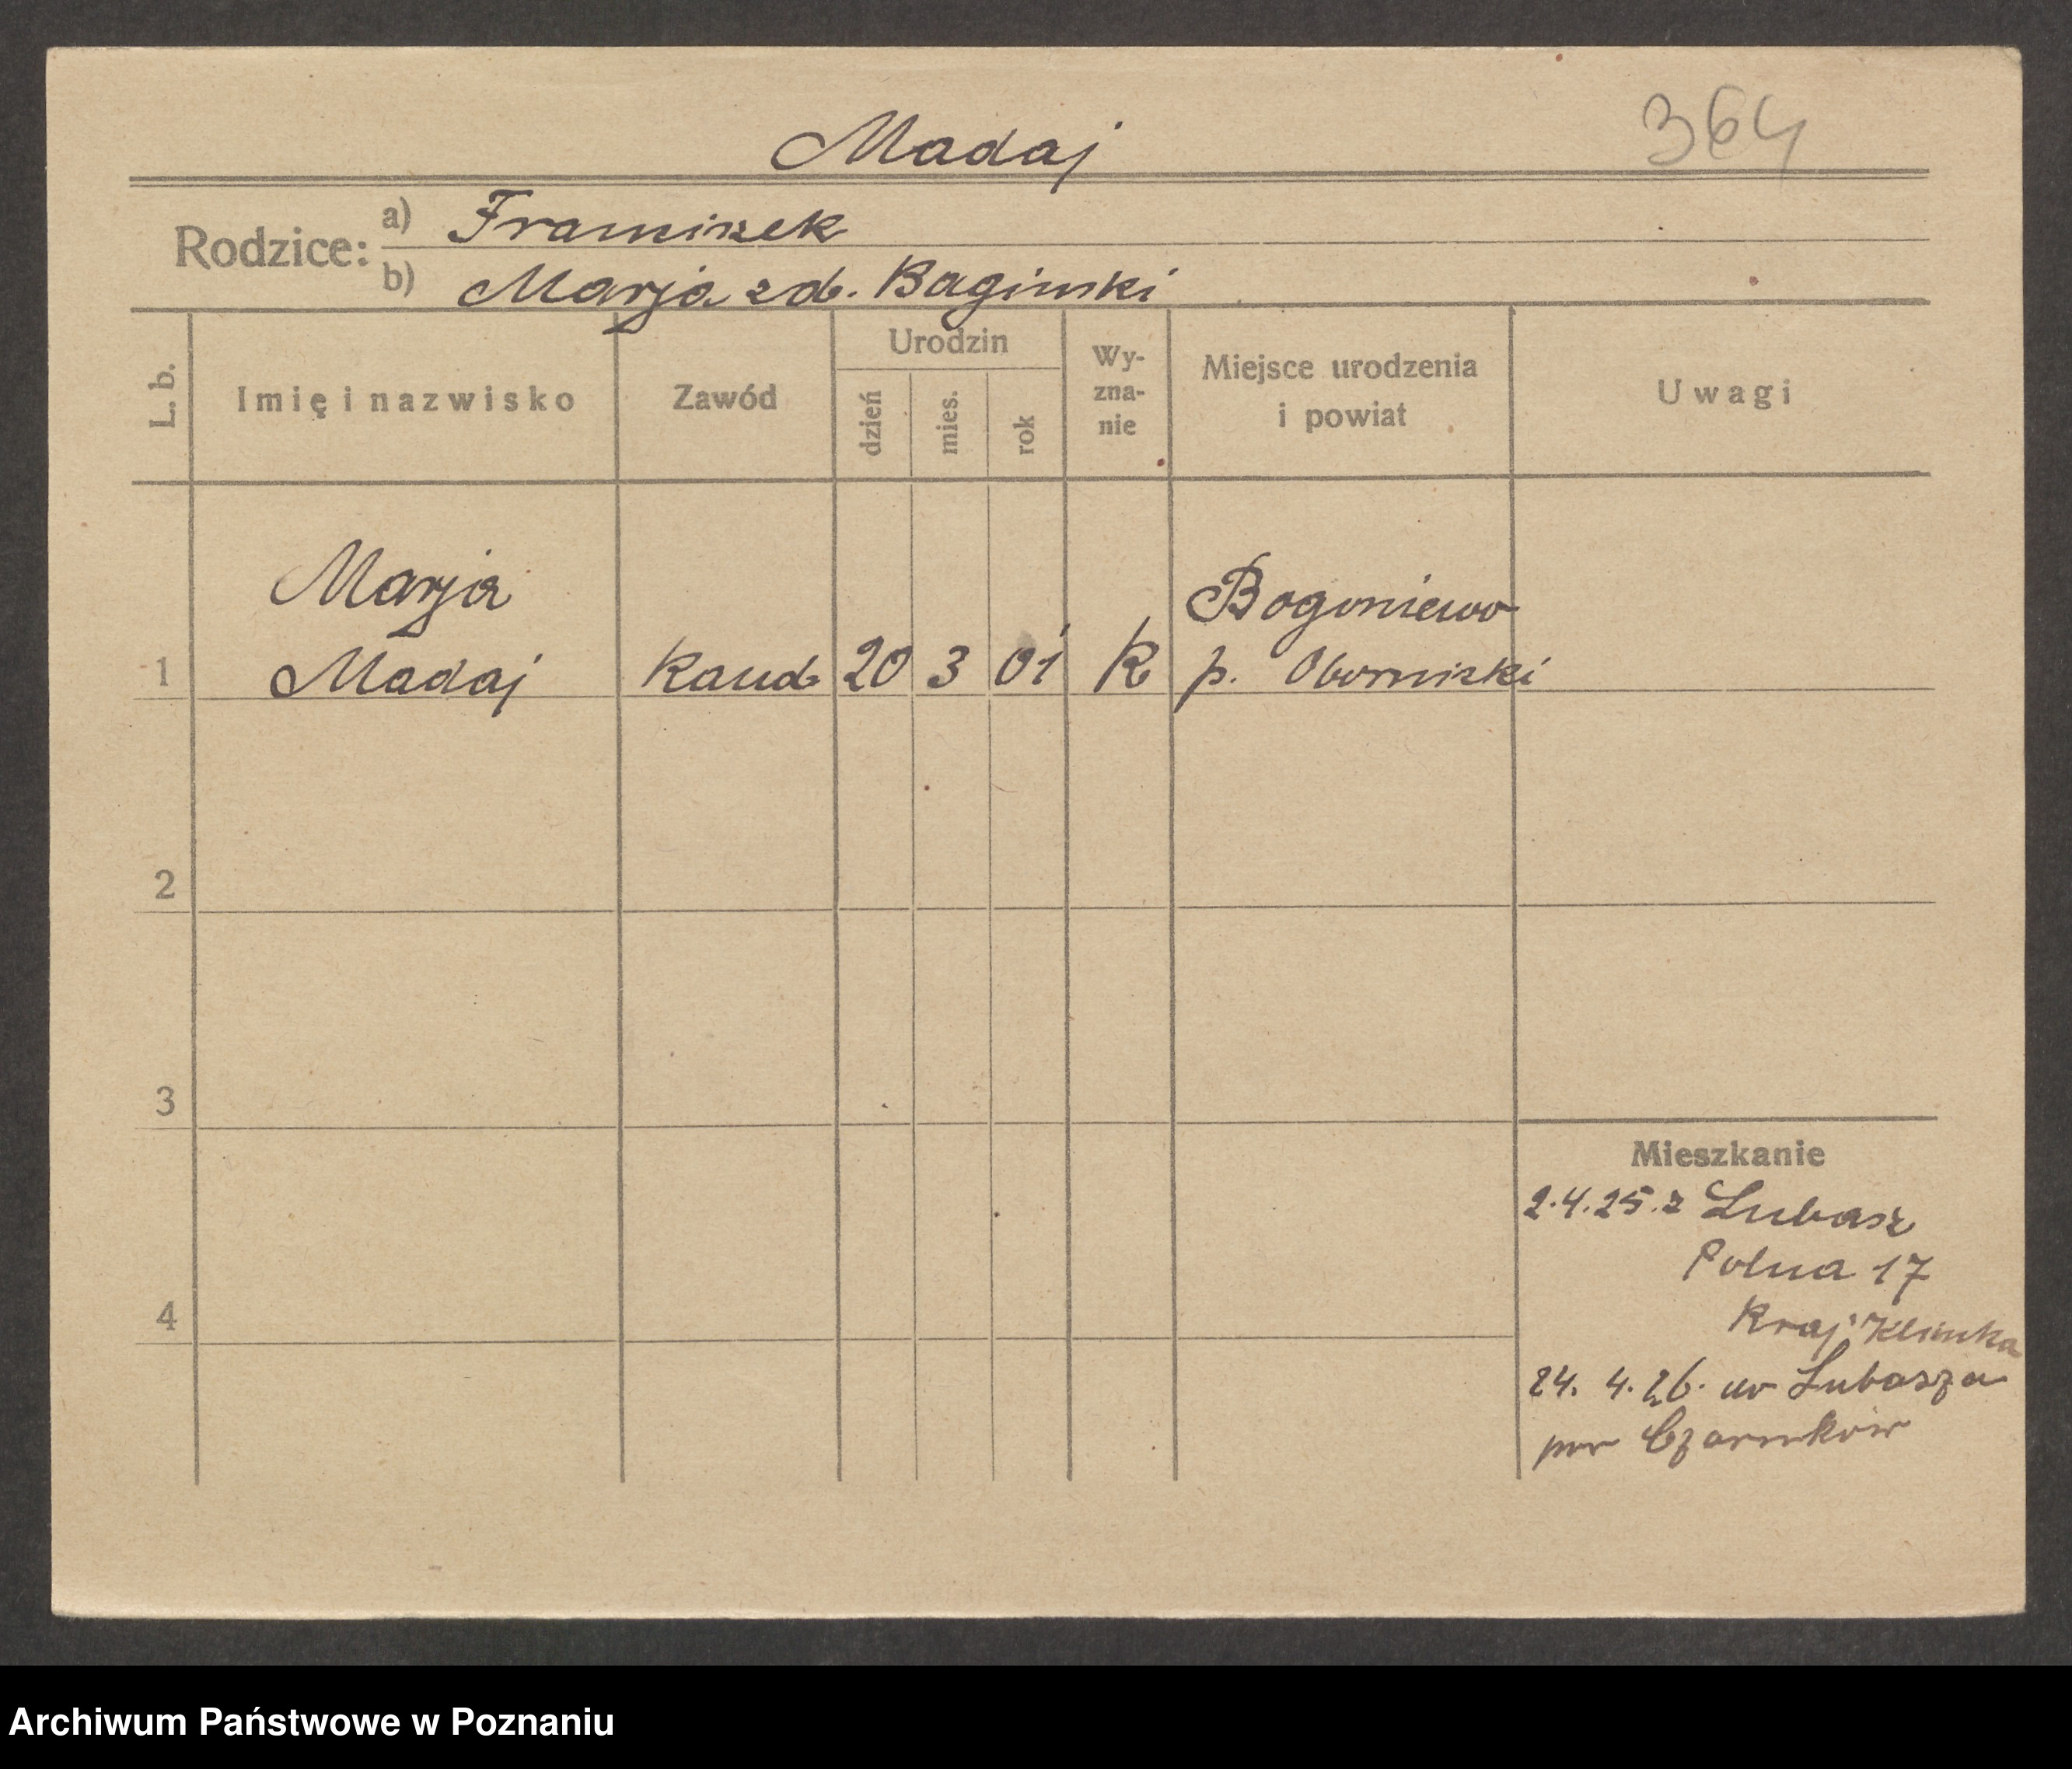 Madaj
364
Rodzice:
a) Franciszek
b) Marja zd. Baginski
L. b.
Imię i nazwisko
Zawód
Urodzin
dzień
mies.
rok
Wy-
zna-
nie
Miejsce urodzenia
i powiat
Uwagi
Marja
Bogoniewo
1 Madaj 20 3 01 K p. Obornicki
2
3
4
Mieszkanie
2.4.25. z Lubasz
Polna 17
24. 4. 26. do Lubasza
pow Czarnków
Archiwum Państwowe w Poznaniu